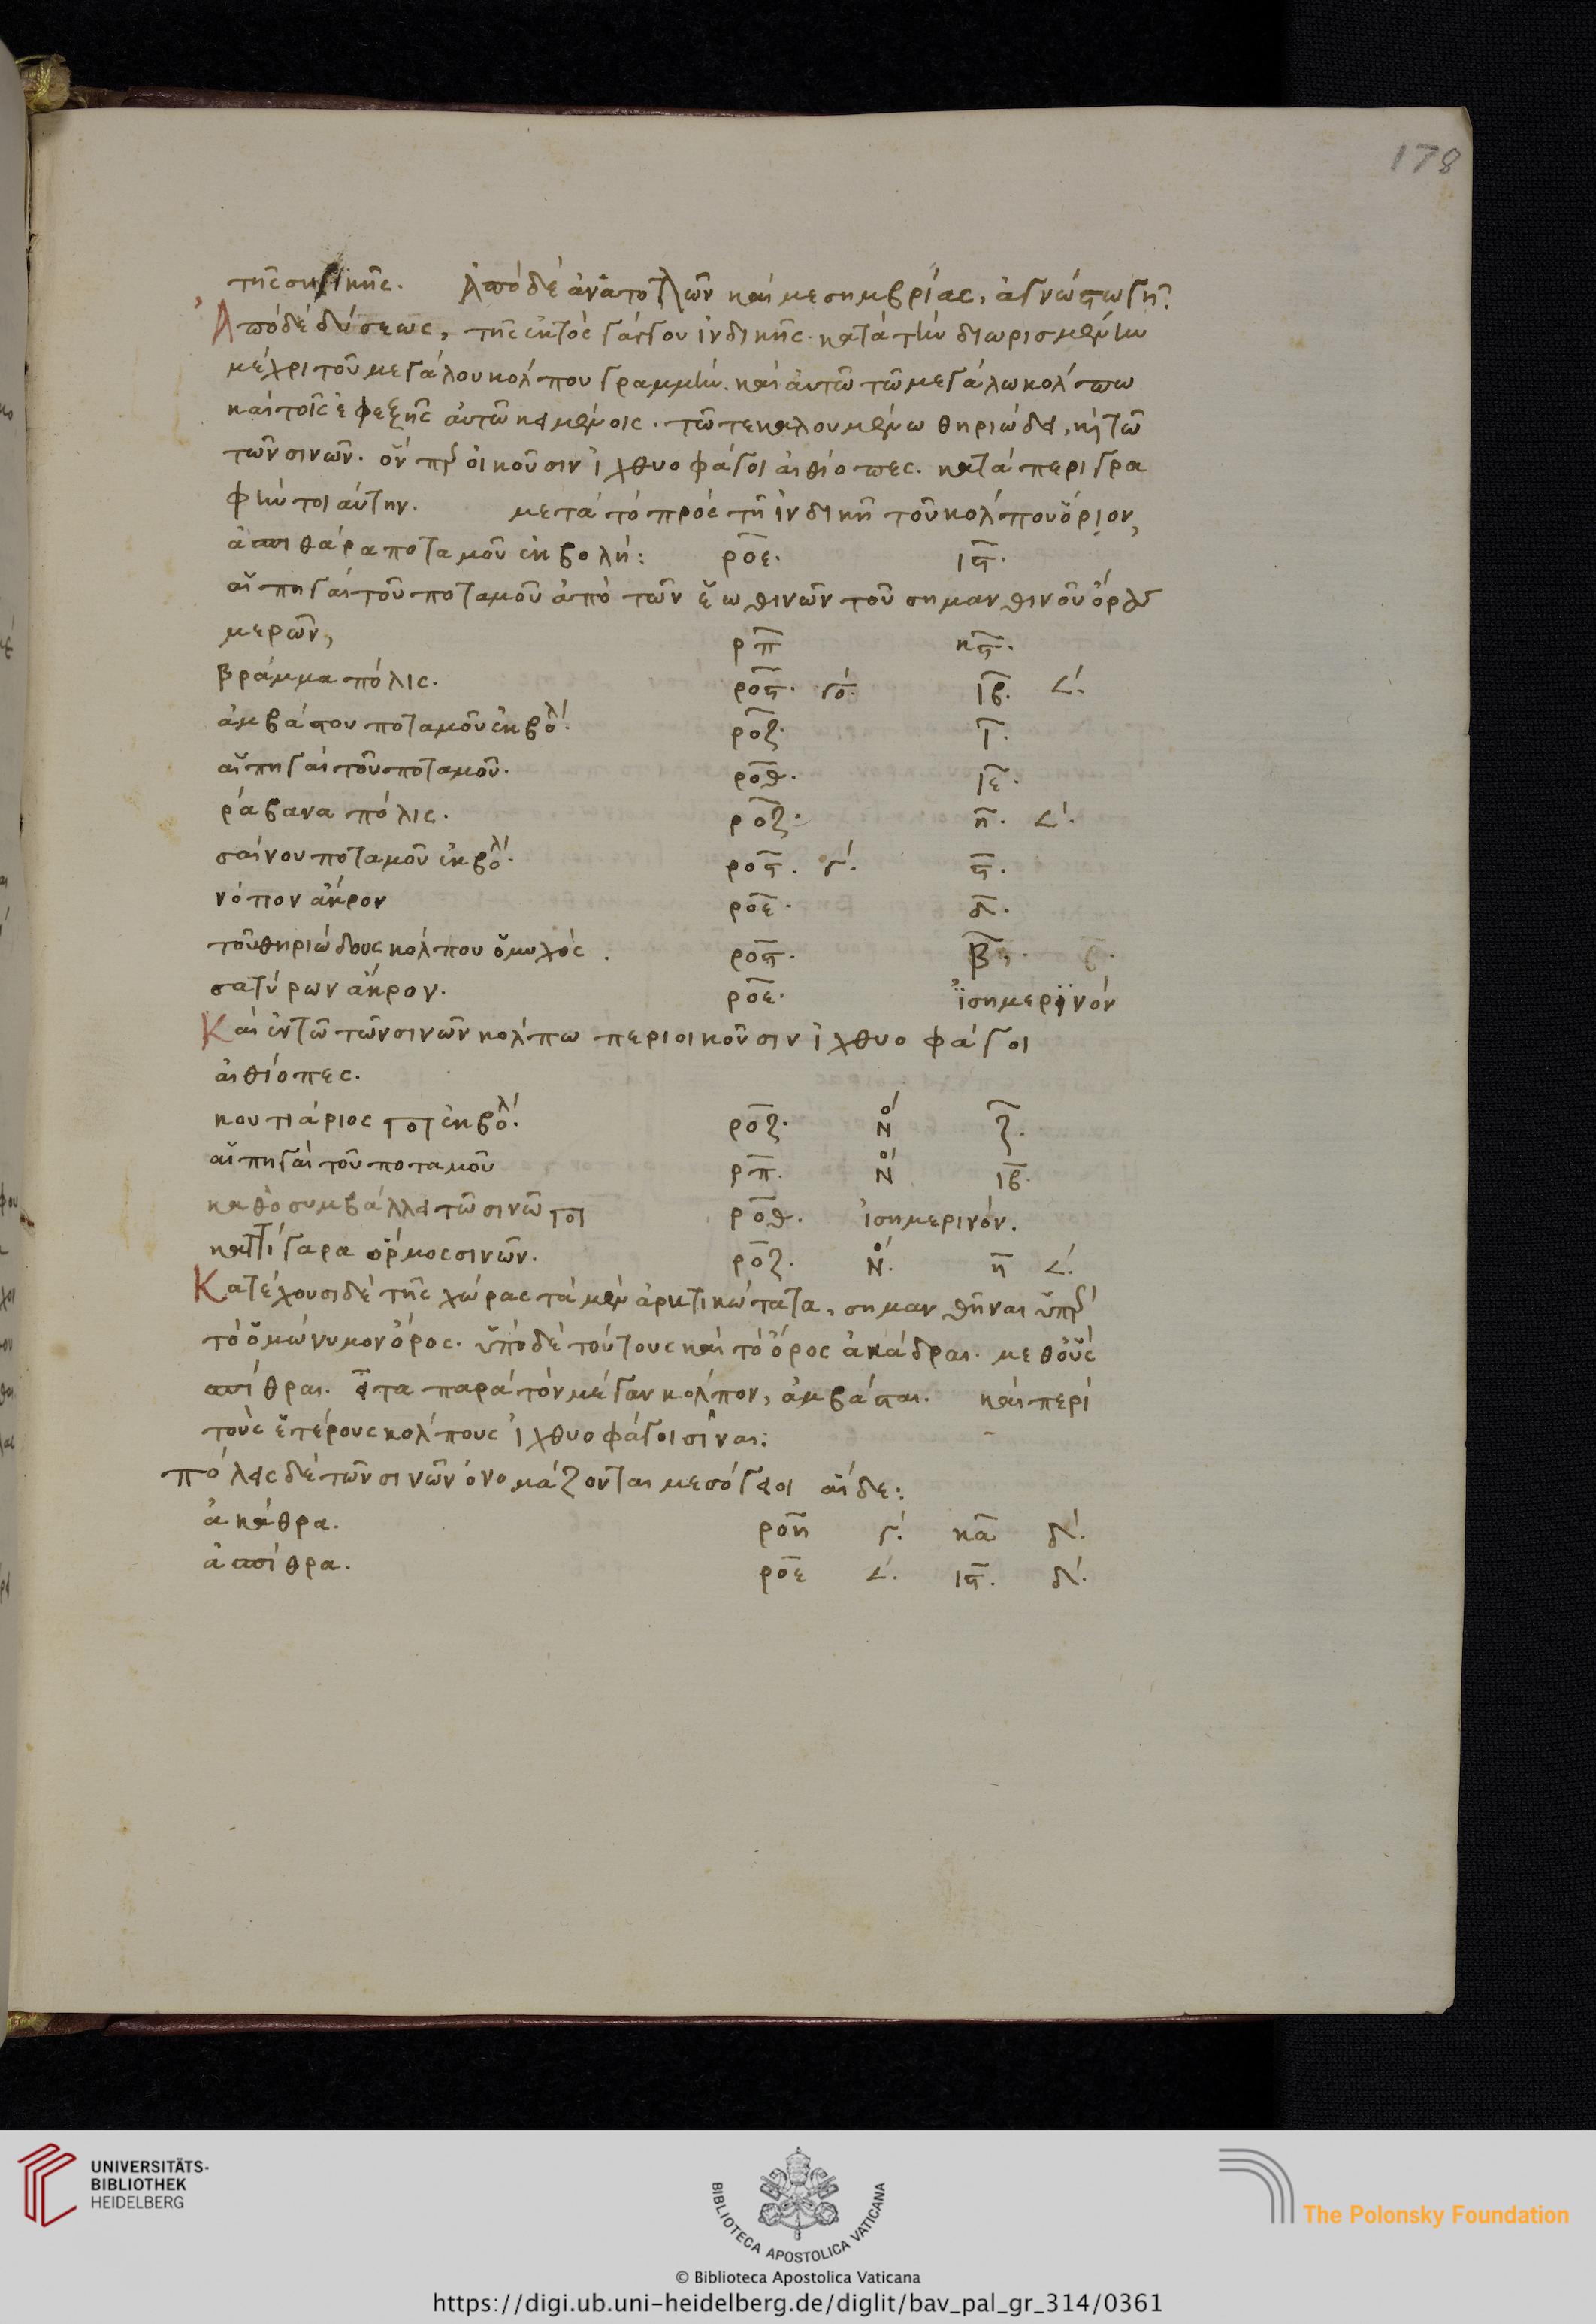 178
τῆς σηρικῆς. Ἀπὸ δὲ ἀνατολῶν καὶ μεσημβρίας, ἀγνώστω γῆ.
Ἀπὸ δὲ δύσεως, τῆς ἐκτὸς γάγγου ἰνδικῆς. κατὰ τὴν διωρισμένην
μέχρι τοῦ μεγάλου κόλπου γραμμὴν. καὶ αὐτῶ τῶ μεγάλω κόλπω
καὶ τοῖς ἐφεξῆς αὐτῶ κειμένοις. τῶ τε καλουμένω θηριώδει, κ τῶ
τῶν σινῶν. ὃν περιοικοῦσιν ἰχθυοφάγοι αἰθίοπες. κατὰ περιγρα
φὴν τοιαύτην. μετὰ τὸ πρὸς τῆ ἰνδικῆ τοῦ κόλπου ὅριον,
ἀσπιθάρα ποταμοῦ ἐκβολή: ροε. ις.
αἱ πηγαὶ τοῦ ποταμοῦ ἀπὸ τῶν ἑωθινῶν τοῦ σημανθινοῦ ὄρους
μερῶν, ρπ κς.
βράμμα πόλις. ρος. γο. ιβ. 𐅵.
ἀμβάστου ποταμοῦ ἐκβολ. ροζ. ι.
αἱ πηγαὶ τοῦ ποταμοῦ. ροθ. ιε.
ράβανα πόλις. ροζ. η. 𐅵.
σαίνου ποταμοῦ ἐκβολ. ρος. γ. ς.
νότιον ἄκρον ροε. δ.
τοῦ θηριώδους κόλπου ὁ μυχός. ρος. β.
σατύρων ἄκρον. ροε. ἰσημερινόν
Καὶ ἐν τῶ τῶν σινῶν κόλπω περιοικοῦσιν ἰχθυοφάγοι
αἰθίοπες.
κουτιάριος ποτ ἐκβολ. ροζ. Νο ζ.
αἱ πηγαὶ τοῦ ποταμοῦ ρπ. Νο ιβ.
καθὸ συμβάλλει τῶ σινῶ ποτ ροθ. ἰσημερινόν.
καττίγαρα ὅρμος σινῶν. ροζ. Νο. η 𐅵.
Κατέχουσι δὲ τῆς χώρας τὰ μὲν ἀρκτικώτατα, σημανθῆναι ὑπὲρ
τὸ ὁμώνυμον ὄρος. ὑπὸ δὲ τούτους καὶ τὸ ὄρος ἀκάδραι. μεθ οὓς
ασπίθραι. εἶτα παρὰ τὸν μέγαν κόλπον, ἀμβάσται. καὶ περὶ
τοὺς ἑτέρους κόλπους ἰχθυοφάγοι σῖναι:
πόλεις δὲ τῶν σινῶν ὀνομάζονται μεσόγειοι αἵδε:
ἀκάθρα. ροη γ. κα δ.
ἀσπίθρα. ροε 𐅵. ις. δ.
UNIVERSITÄTS-
BIBLIOTHEK
HEIDELBERG
BIBLIOTECA APOSTOLICA VATICANA
The Polonsky Foundation
© Biblioteca Apostolica Vaticana
https://digi.ub.uni-heidelberg.de/diglit/bav_pal_gr_314/0361